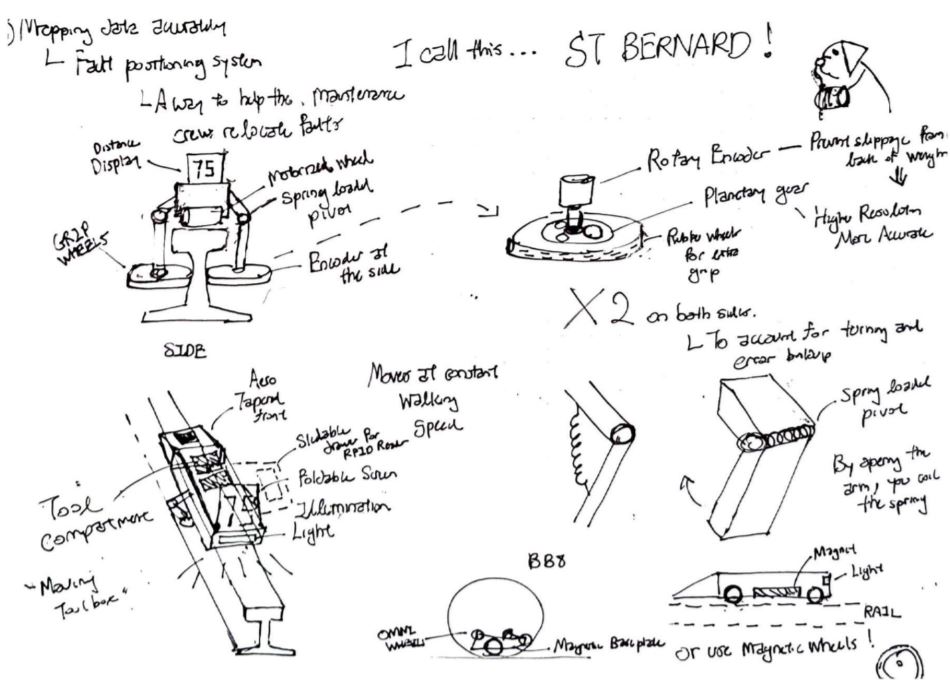 ) Mapping data accurately
Fault positioning system
A way to help the maintenance
crews relocate faults
I call this... ST BERNARD!
Distance
Display
75
Motorized wheel
Spring loaded
pivot
GRIP
WHEELS
Encoder at
the side
SIDE
Rotary Encoder — Prevent slippage from
lack of weight
Planetary gear
Higher Resolution
More Accurate
Rubber wheel
for extra
grip
X2 on both sides.
To account for turning and
error buildup
Aero
Tapered
front
Moves at constant
Walking
Speed
Slidable
drawer for
RFID Reader
Foldable Screen
Illumination
Light
7
Tool
compartment
"Moving
Toolbox"
Spring loaded
pivot
By opening the
arm, you coil
the spring
BB8
OMNI
WHEEL
Magnetic Base plate
Magnet
Light
RAIL
Or use Magnetic Wheels!